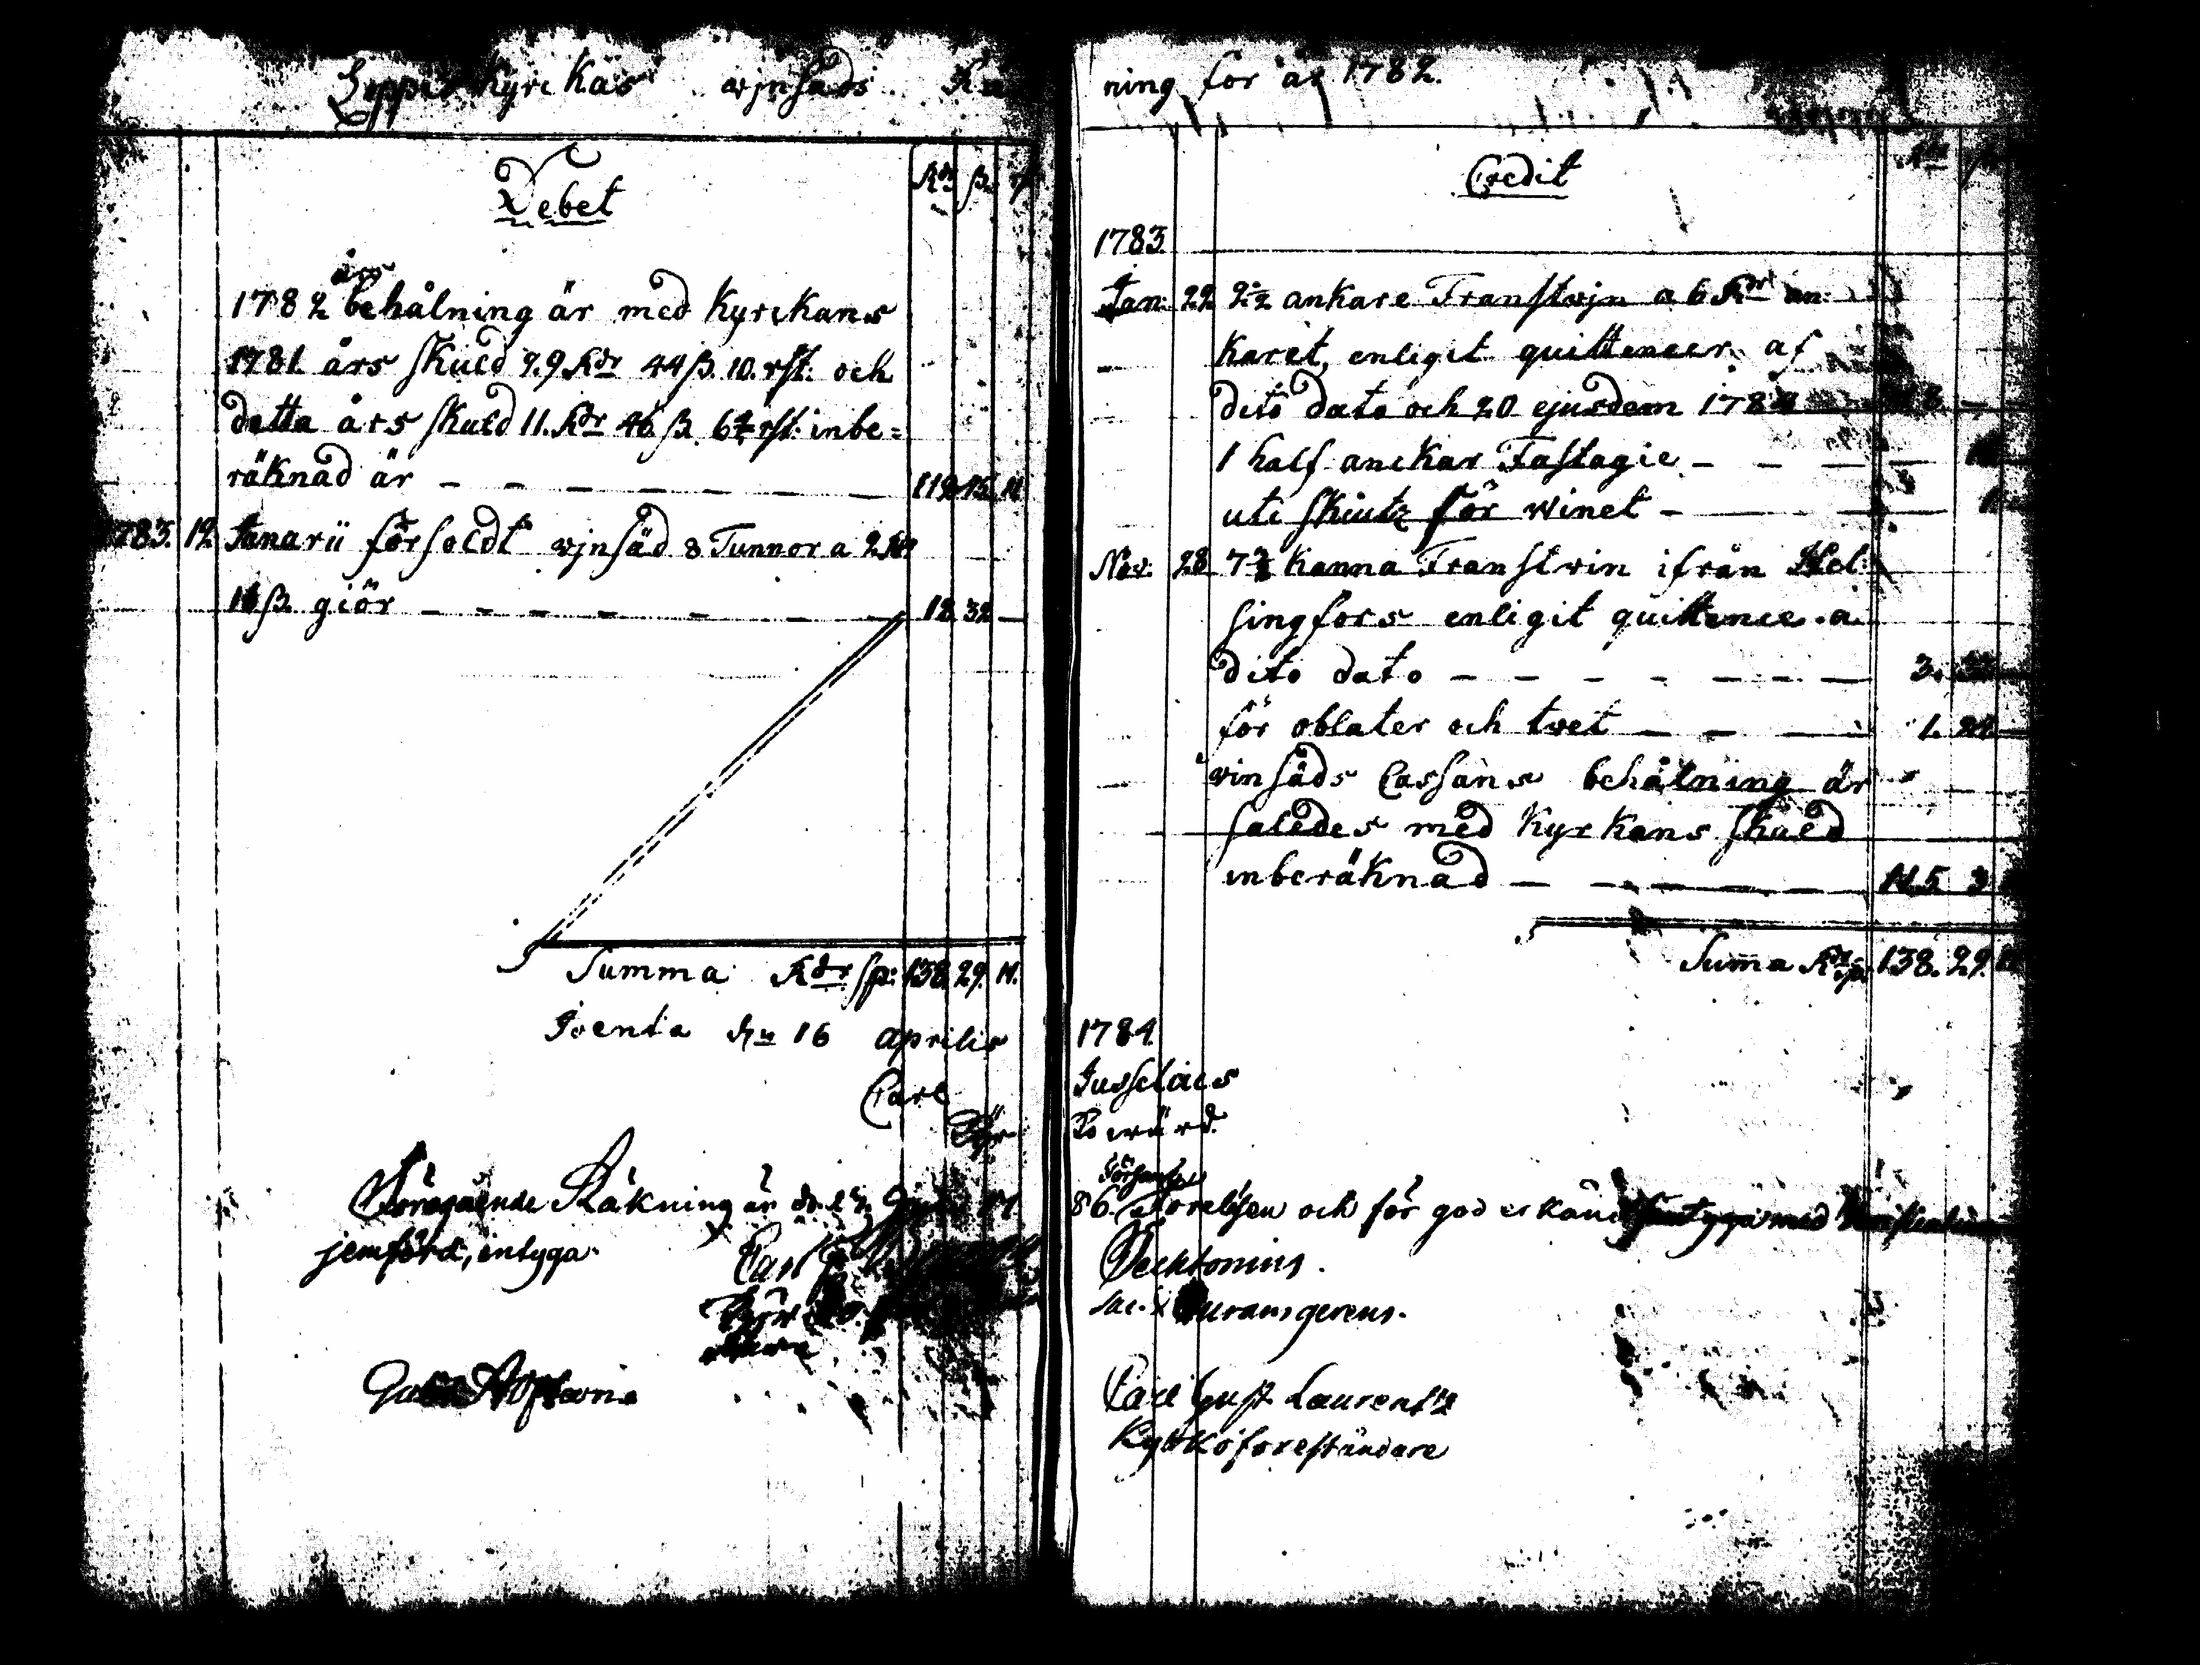 Leppis Kyrckas winsäds Räk
ning för år 1782.
Debet
Rdr ß. rst
1782 års behålning är med Kyrckans
1781 års skuld 99 Rdr 44 ß. 10. rst: och
detta års skuld 11. Rdr 46 ß. rst: inbe=
räknad är — — — — — — — 119. 45. 11
1783. 12. Janarii försoldt winsäd 8 Tunnor a 2 Rdr
16 ß. giör — — — — — — — 18. 32 —
Summa Rdr sp: 138. 29. 11.
Joenta den 16 aprilis
Carl
Kyr
Föregående Räkning är
jemförd, intyga
Carl
Credit
1783.
Jan: 22 2½ ankare Franstwin a 6 Rdr an:
karet, enligit quittencer af
dito dato och 20 ejusdem
1 half anckar Fastagie — — —
uti skiutz för winet — — —
Nov: 28 kanna Franstwin ifrån Hel:
singfors enligit quittence a
dito dato — — — — — — — 3.
för oblater och twet — — — 1. 24. —
winsäds Cassans behålning är
saledes med Kyrkans skuld
inberäknad — — — — — — 115 3
Summa Rdr sp. 138. 29. 11
1784
Jusselius
86. Föreläsen och för god erkänd
Wecktonius.
Sac. Curam gerens.
Carl Gust Laurentz
Kyrkoföreståndare